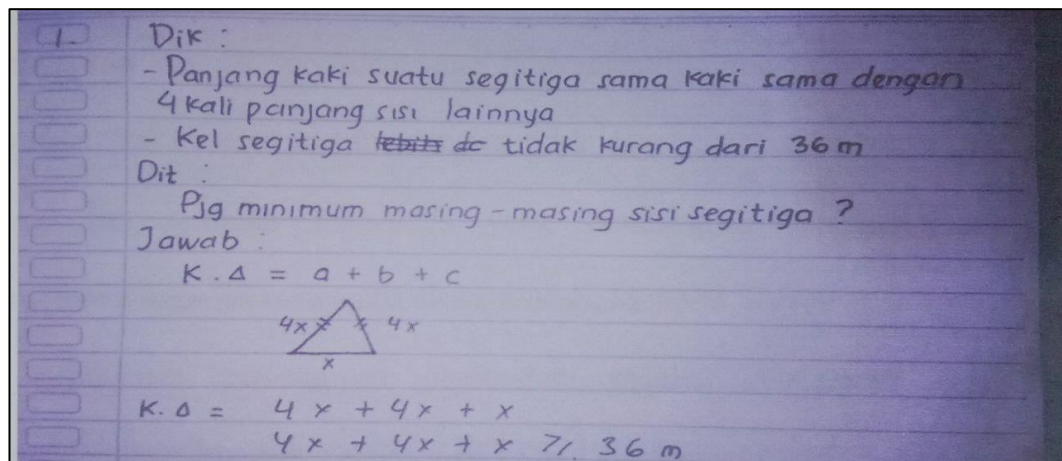 1. Dik :
- Panjang kaki suatu segitiga sama kaki sama dengan
4 kali panjang sisi lainnya
- Kel segitiga lebih dc tidak kurang dari 36 m
Dit :
Pjg minimum masing-masing sisi segitiga ?
Jawab :
K. Δ = a + b + c
4x 4x
x
K. Δ = 4x + 4x + x
4x + 4x + x ≥ 36 m